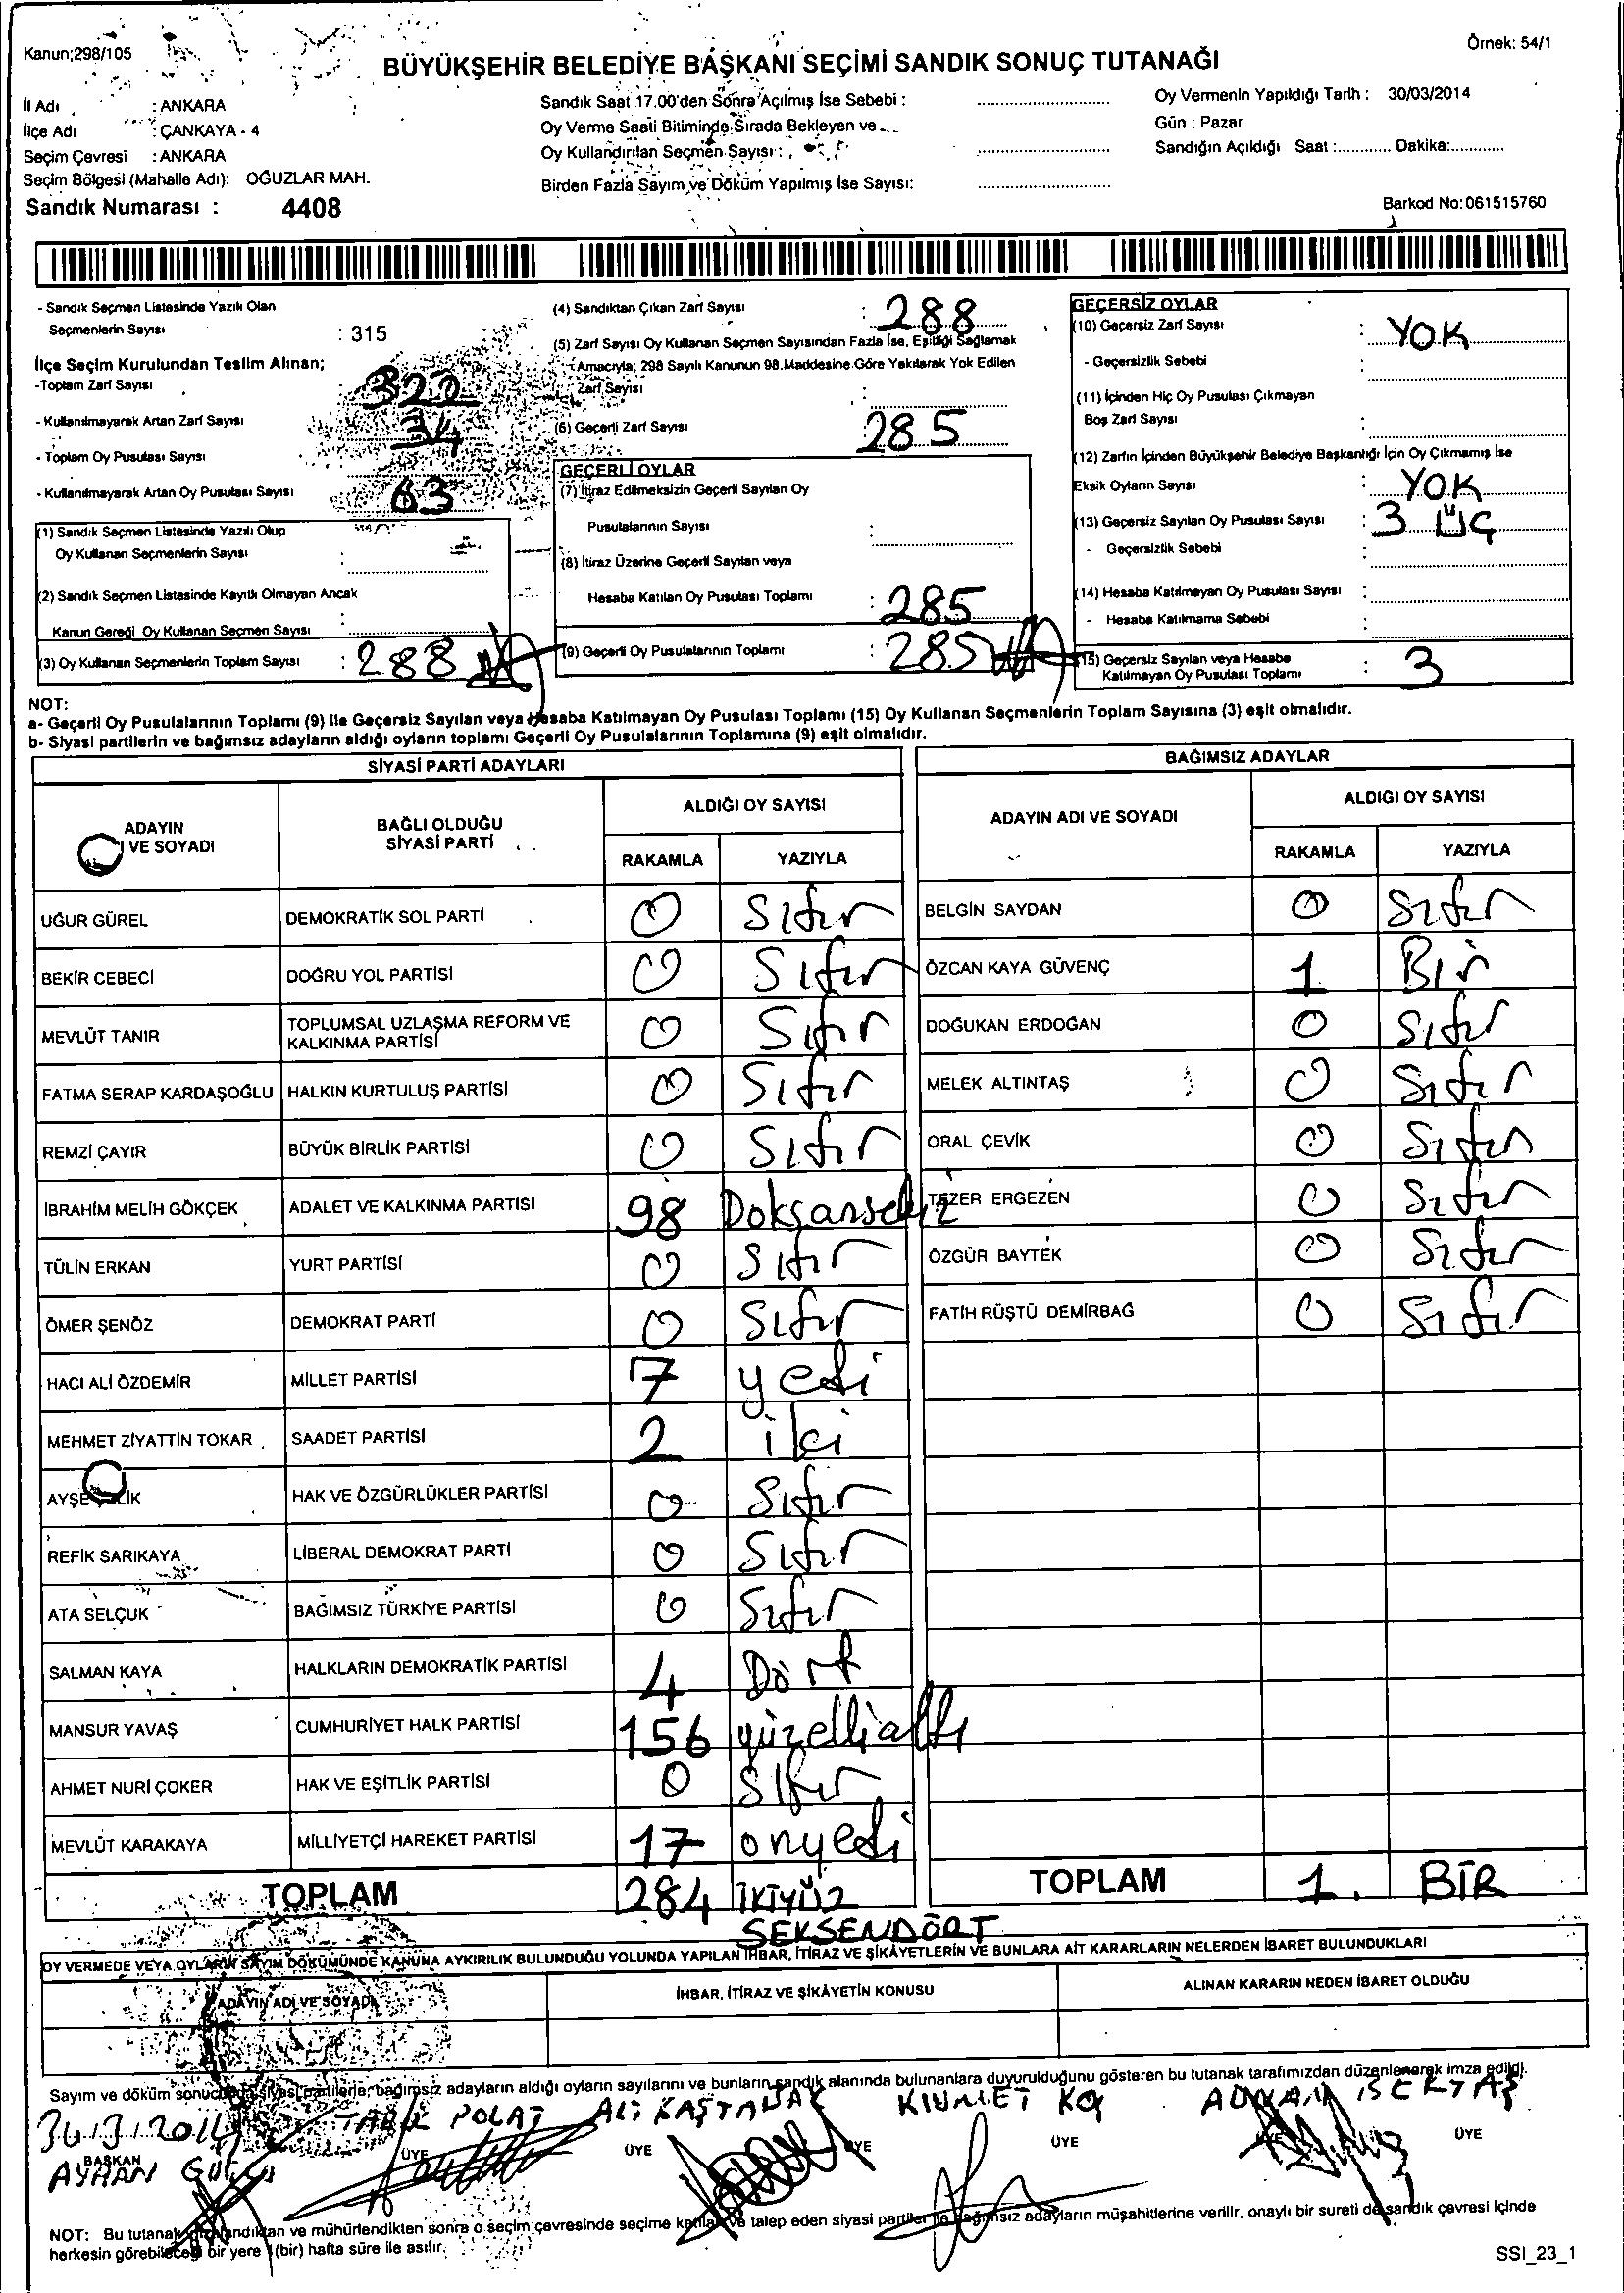 Kanun;298/105
Örnek: 54/1
BÜYÜKŞEHİR BELEDİYE BAŞKANI SEÇİMİ SANDIK SONUÇ TUTANAĞI
İl Adı : ANKARA
İlçe Adı : ÇANKAYA - 4
Seçim Çevresi : ANKARA
Seçim Bölgesi (Mahalle Adı): OĞUZLAR MAH.
Sandık Numarası : 4408
Sandık Saat 17.00'den Sonra Açılmış İse Sebebi :
Oy Verme Saati Bitiminde Sırada Bekleyen ve
Oy Kullandırılan Seçmen Sayısı :
Birden Fazla Sayım ve Döküm Yapılmış İse Sayısı:
Oy Vermenin Yapıldığı Tarih : 30/03/2014
Gün : Pazar
Sandığın Açıldığı Saat :............ Dakika:............
Barkod No:061515760
- Sandık Seçmen Listesinde Yazılı Olan
Seçmenlerin Sayısı : 315
İlçe Seçim Kurulundan Teslim Alınan;
-Toplam Zarf Sayısı 322
- Kullanılmayarak Artan Zarf Sayısı 34
- Toplam Oy Pusulası Sayısı
- Kullanılmayarak Artan Oy Pusulası Sayısı 63
(1) Sandık Seçmen Listesinde Yazılı Olup
Oy Kullanan Seçmenlerin Sayısı :
(2) Sandık Seçmen Listesinde Kayıtlı Olmayan Ancak
Kanun Gereği Oy Kullanan Seçmen Sayısı :
(3) Oy Kullanan Seçmenlerin Toplam Sayısı : 288
(4) Sandıktan Çıkan Zarf Sayısı : 288
(5) Zarf Sayısı Oy Kullanan Seçmen Sayısından Fazla İse, Eşitliği Sağlamak
Amacıyla; 298 Sayılı Kanunun 98.Maddesine Göre Yakılarak Yok Edilen
Zarf Sayısı :
(6) Geçerli Zarf Sayısı 285
GEÇERLİ OYLAR
(7) İtiraz Edilmeksizin Geçerli Sayılan Oy
Pusulalarının Sayısı :
(8) İtiraz Üzerine Geçerli Sayılan veya
Hesaba Katılan Oy Pusulası Toplamı : 285
(9) Geçerli Oy Pusulalarının Toplamı : 285
GEÇERSİZ OYLAR
(10) Geçersiz Zarf Sayısı : YOK
- Geçersizlik Sebebi :
(11) İçinden Hiç Oy Pusulası Çıkmayan
Boş Zarf Sayısı :
(12) Zarfın İçinden Büyükşehir Belediye Başkanlığı İçin Oy Çıkmamış İse
Eksik Oyların Sayısı : YOK
(13) Geçersiz Sayılan Oy Pusulası Sayısı : 3 ÜÇ
- Geçersizlik Sebebi :
(14) Hesaba Katılmayan Oy Pusulası Sayısı :
- Hesaba Katılmama Sebebi :
(15) Geçersiz Sayılan veya Hesaba
Katılmayan Oy Pusulası Toplamı : 3
NOT:
a- Geçerli Oy Pusulalarının Toplamı (9) ile Geçersiz Sayılan veya Hesaba Katılmayan Oy Pusulası Toplamı (15) Oy Kullanan Seçmenlerin Toplam Sayısına (3) eşit olmalıdır.
b- Siyasi partilerin ve bağımsız adayların aldığı oyların toplamı Geçerli Oy Pusulalarının Toplamına (9) eşit olmalıdır.
SİYASİ PARTİ ADAYLARI
ADAYIN
VE SOYADI
BAĞLI OLDUĞU
SİYASİ PARTİ
ALDIĞI OY SAYISI
RAKAMLA YAZIYLA
UĞUR GÜREL DEMOKRATİK SOL PARTİ 0 Sıfır
BEKİR CEBECİ DOĞRU YOL PARTİSİ 0 Sıfır
MEVLÜT TANIR TOPLUMSAL UZLAŞMA REFORM VE KALKINMA PARTİSİ 0 Sıfır
FATMA SERAP KARDAŞOĞLU HALKIN KURTULUŞ PARTİSİ 0 Sıfır
REMZİ ÇAYIR BÜYÜK BİRLİK PARTİSİ 0 Sıfır
İBRAHİM MELİH GÖKÇEK ADALET VE KALKINMA PARTİSİ 98 Doksansekiz
TÜLİN ERKAN YURT PARTİSİ 0 Sıfır
ÖMER ŞENÖZ DEMOKRAT PARTİ 0 Sıfır
HACI ALİ ÖZDEMİR MİLLET PARTİSİ 7 yedi
MEHMET ZİYATTİN TOKAR SAADET PARTİSİ 2 iki
AYŞE HAK VE ÖZGÜRLÜKLER PARTİSİ 0 Sıfır
REFİK SARIKAYA LİBERAL DEMOKRAT PARTİ 0 Sıfır
ATA SELÇUK BAĞIMSIZ TÜRKİYE PARTİSİ 0 Sıfır
SALMAN KAYA HALKLARIN DEMOKRATİK PARTİSİ 4 Dört
MANSUR YAVAŞ CUMHURİYET HALK PARTİSİ 156 yüzellialtı
AHMET NURİ ÇOKER HAK VE EŞİTLİK PARTİSİ 0 Sıfır
MEVLÜT KARAKAYA MİLLİYETÇİ HAREKET PARTİSİ 17 onyedi
TOPLAM 284 İKİYÜZ
SEKSENDÖRT
BAĞIMSIZ ADAYLAR
ADAYIN ADI VE SOYADI
ALDIĞI OY SAYISI
RAKAMLA YAZIYLA
BELGİN SAYDAN 0 Sıfır
ÖZCAN KAYA GÜVENÇ 1 Bir
DOĞUKAN ERDOĞAN 0 Sıfır
MELEK ALTINTAŞ 0 Sıfır
ORAL ÇEVİK 0 Sıfır
TEZER ERGEZEN 0 Sıfır
ÖZGÜR BAYTEK 0 Sıfır
FATİH RÜŞTÜ DEMİRBAĞ 0 Sıfır
TOPLAM 1. BİR
OY VERMEDE VEYA OYLARIN SAYIM DÖKÜMÜNDE KANUNA AYKIRILIK BULUNDUĞU YOLUNDA YAPILAN İHBAR, İTİRAZ VE ŞİKÂYETLERİN VE BUNLARA AİT KARARLARIN NELERDEN İBARET BULUNDUKLARI
ADAYIN ADI VE SOYADI
İHBAR, İTİRAZ VE ŞİKÂYETİN KONUSU
ALINAN KARARIN NEDEN İBARET OLDUĞU
Sayım ve döküm sonucunda siyasi partilerle, bağımsız adayların aldığı oyların sayılarını ve bunların sandık alanında bulunanlara duyurulduğunu gösteren bu tutanak tarafımızdan düzenlenerek imza edildi.
POLAT ALİ KAŞTANAK KIYMET KOÇ ADNAN
BAŞKAN ÜYE ÜYE ÜYE ÜYE ÜYE ÜYE
AYHAN
NOT: Bu tutanak düzenlendikten ve mühürlendikten sonra o seçim çevresinde seçime katılan ve talep eden siyasi partiler ile bağımsız adayların müşahitlerine verilir, onaylı bir sureti de sandık çevresi içinde
herkesin görebileceği bir yere 1(bir) hafta süre ile asılır.
SSI_23_1